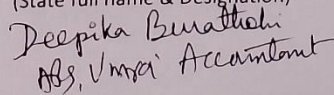 (State full name & Designation)
Deepika Burathoki
ABS, Umroi Accountant